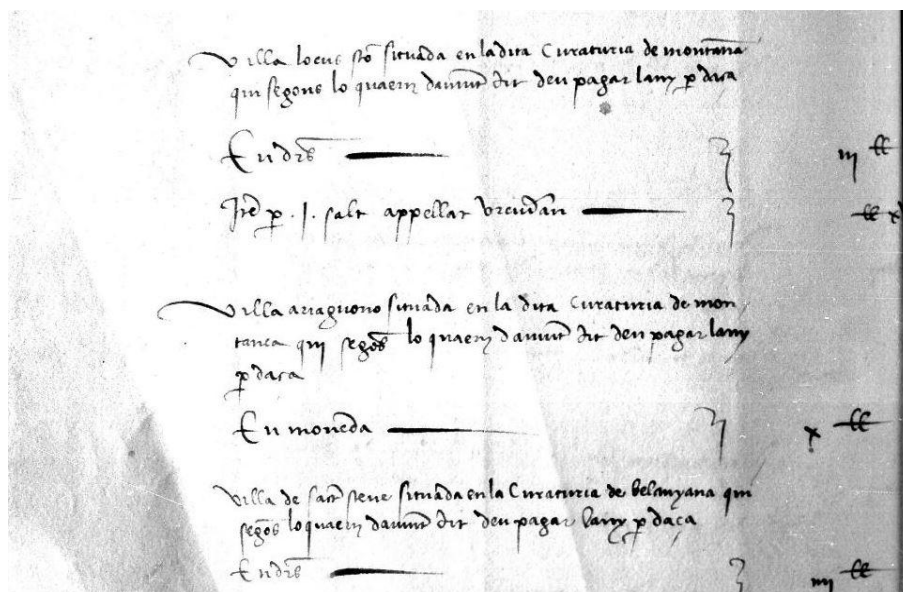 Villa locus sto situada en la dita Curaturia de montana
qui segons lo quaern damunt dit deu pagar lany p daça
En drs iij ll
Itē p . j . salt appellat ll
Villa ariaguono situada en la dita Curaturia de mon
tanea qui segōs lo quaern damunt dit deu pagar lany
p daça
En moneda x ll
Villa de sact steve situada en la Curaturia de belanyana qui
segōs lo quaern damunt dit deu pagar lany p daça
En drs iiij ll